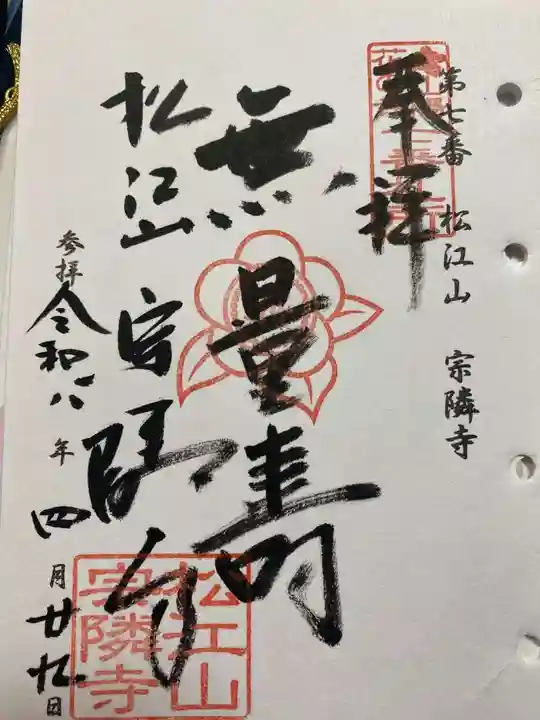 第七番 松江山 宗隣寺
奉拝
無量寿
松江山 宗隣寺
参拝 令和八年四月廿九日
松江山
宗隣寺